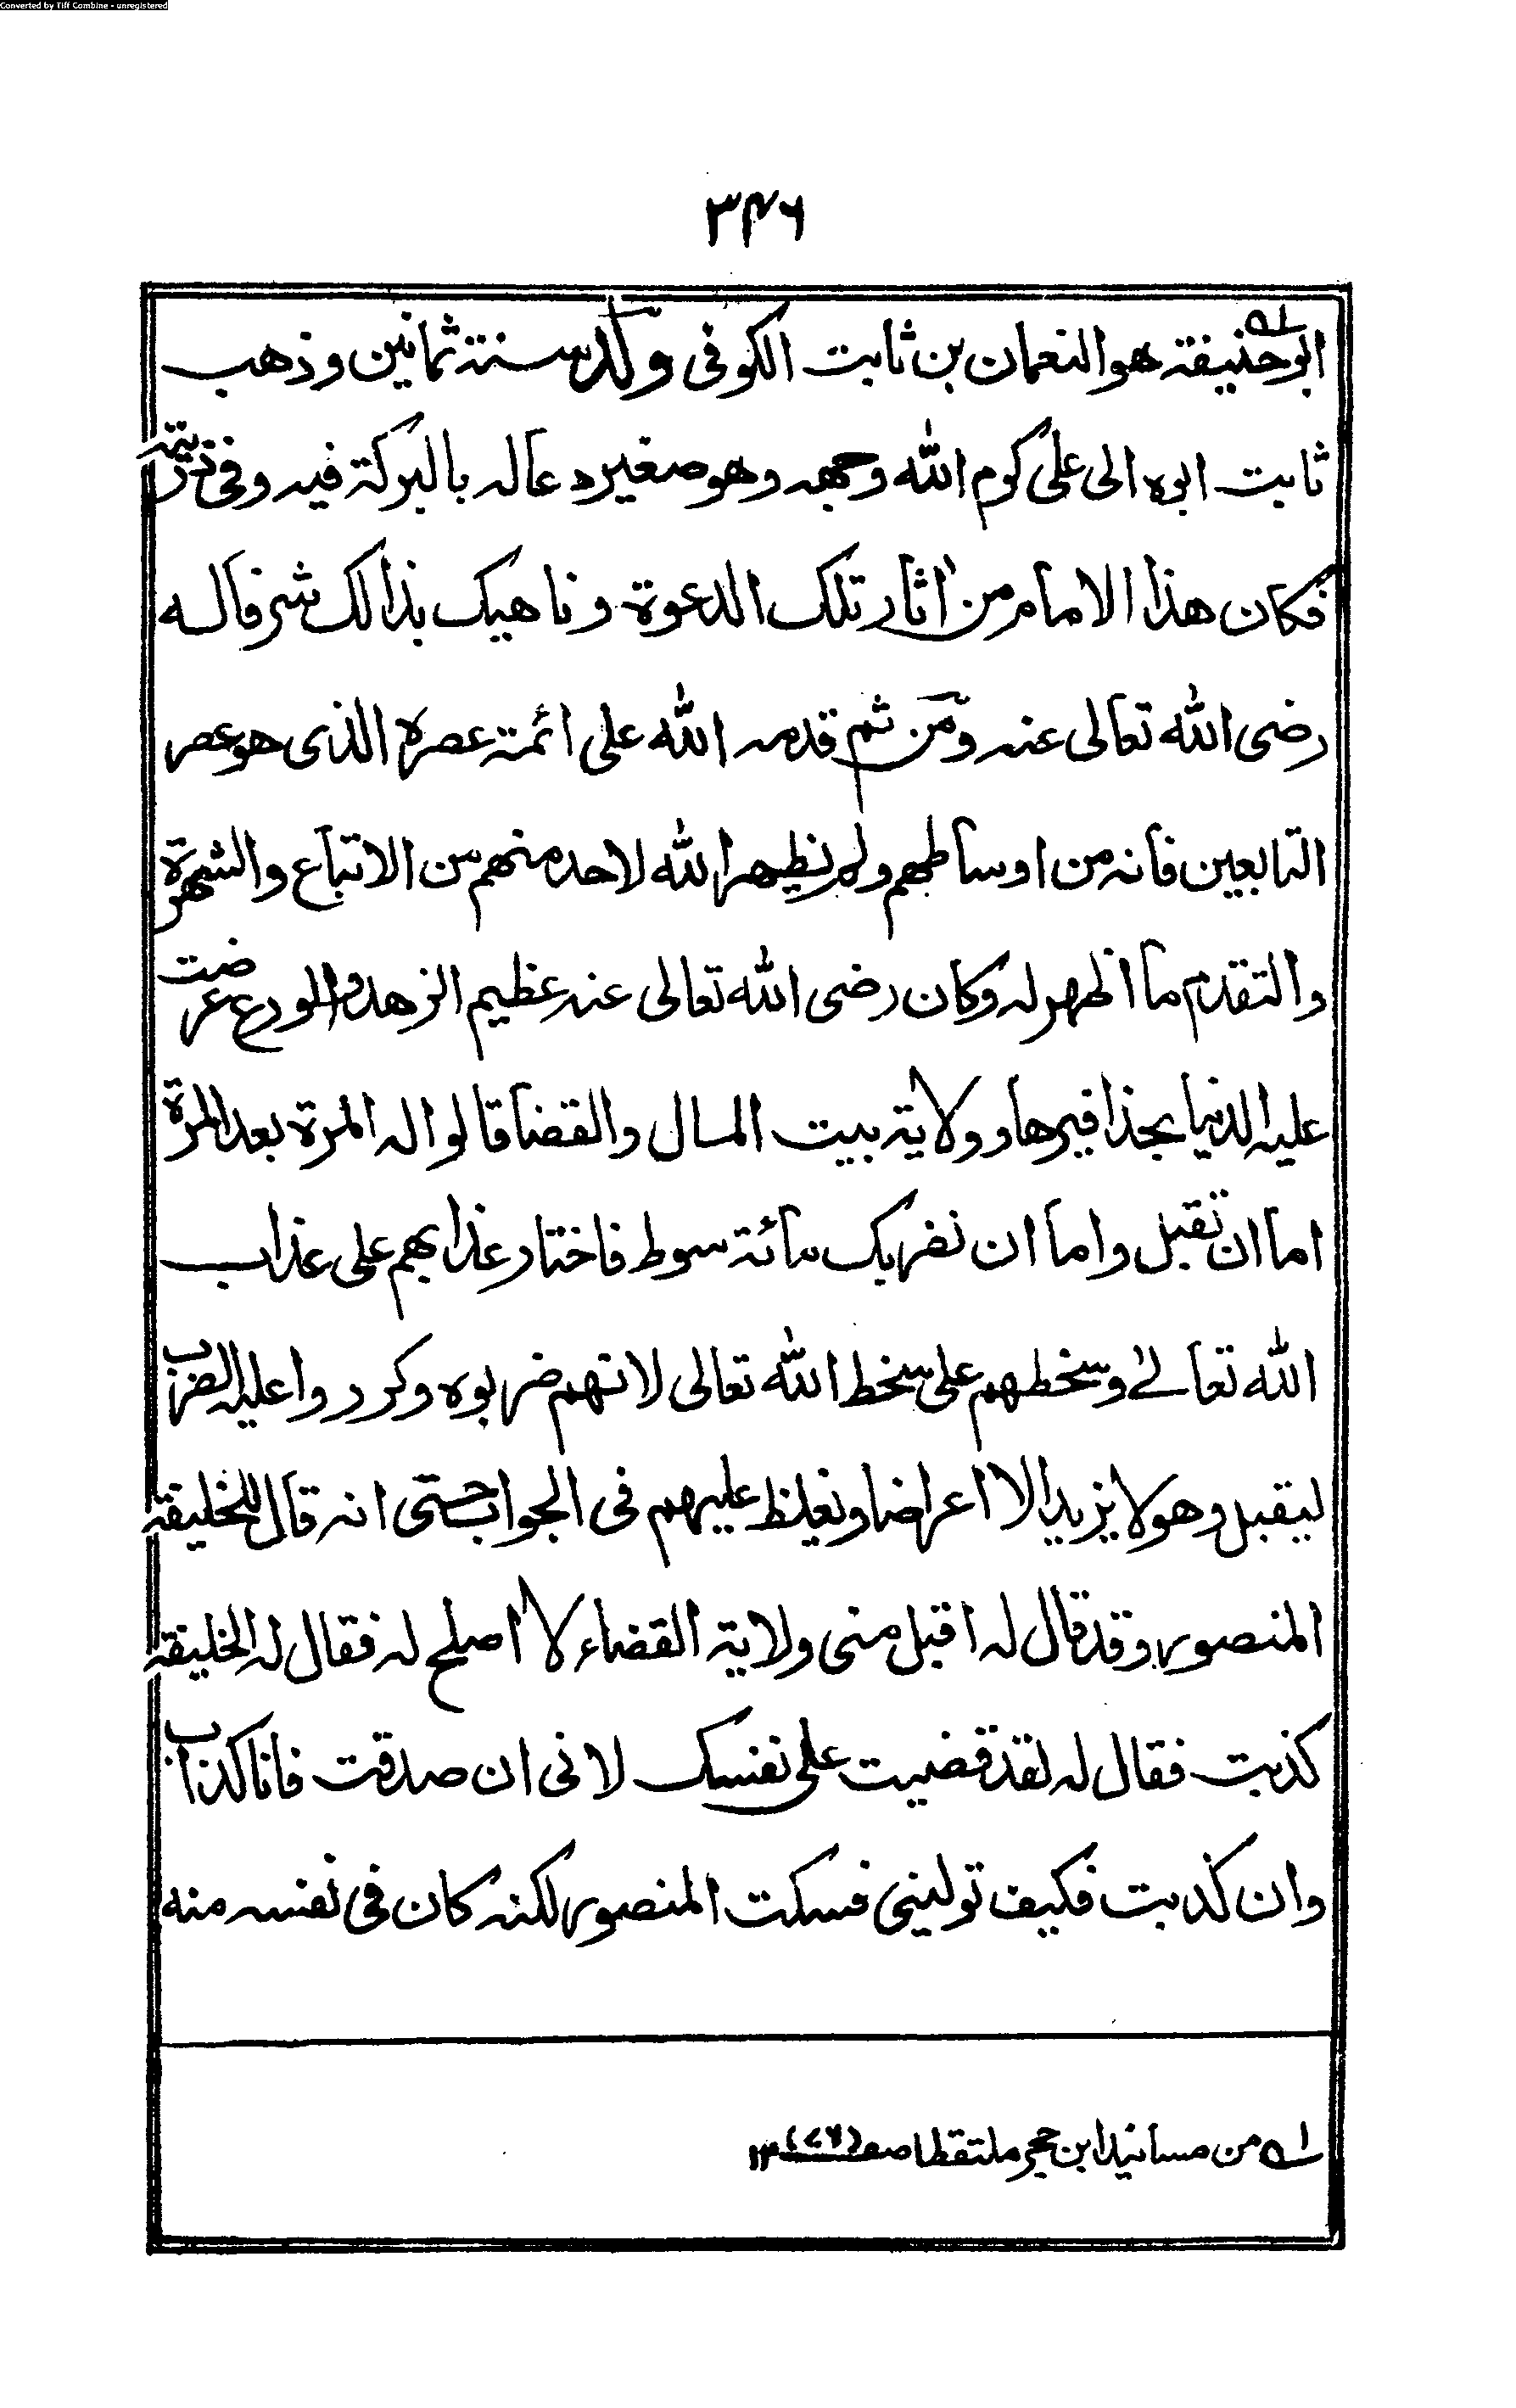 Converted by Tiff Combine - unregistered
۳۴۶
ابوحنيفة هو النعمان بن ثابت الكوفى ولد سنة ثمانين وذهب
ثابت ابوه الى على كرم الله وجهه وهو صغير دعا له بالبركة فيه وفى ذريته
فكان هذا الامام من اثار تلك الدعوة وناهيك بذالك شرفا له
رضى الله تعالى عنه ومن ثم قدمه الله على ائمة عصره الذى هو عصر
التابعين فانه من اوساطهم ولم يظهر الله لاحد منهم من الاتباع والشهرة
والتقدم ما اظهر له وكان رضى الله تعالى عنه عظيم الزهد والورع عرضت
عليه الدنيا بحذافيرها وولاية بيت المال والقضا قالوا له المرة بعد المرة
اما ان تقبل واما ان نضربك مائة سوط فاختار عذابهم على عذاب
الله تعالے وسخطهم على سخط الله تعالى لانهم ضربوه وكرروا عليه الضرب
ليقبل وهو لا يزيد الا اعراضا ويغلظ عليهم فى الجواب حتى انه قال للخليفة
المنصور وقد قال له اقبل منى ولاية القضاء لا اصلح له فقال له الخليفة
كذبت فقال له لقد قضيت على نفسك لانى ان صدقت فانا كذاب
وان كذبت فكيف تولينى فسكت المنصور لكنه كان فى نفسه منه
لـه من مسانيد ابن حجر ملتقطا صـ (۲۷) ۱۲